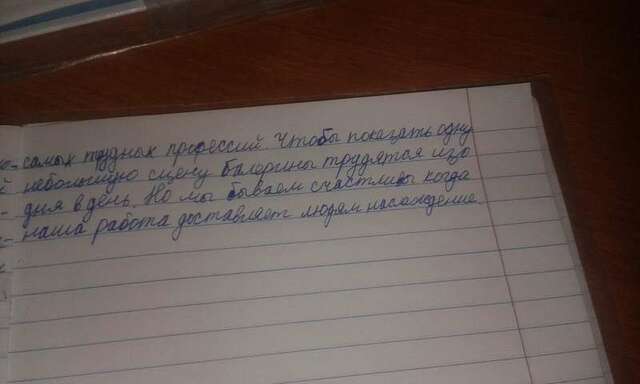 самых трудных профессий. Чтобы показать одну
небольшую сцену балерины трудятся изо
дня в день. Но мы бываем счастливы когда
наша работа доставляет людям насождение.